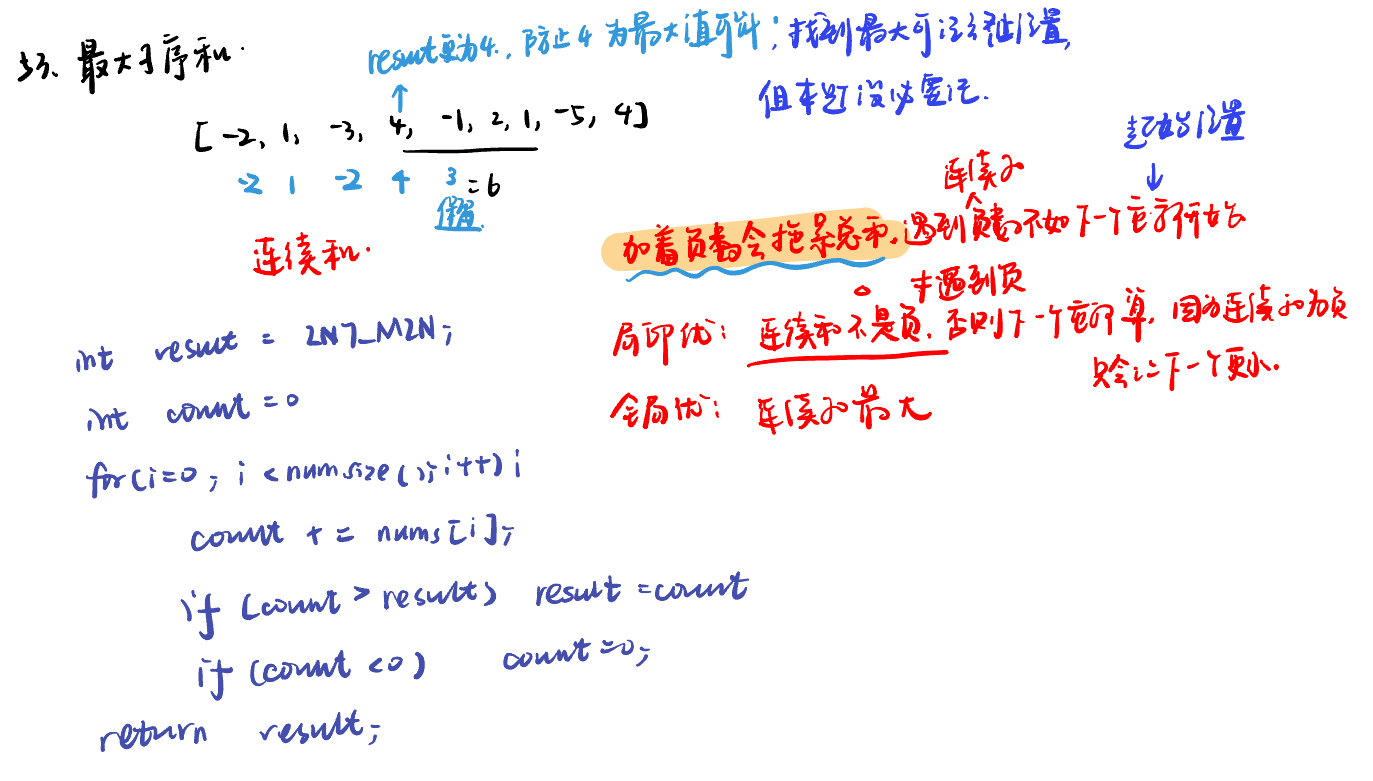 53、最大子序和.
result更为4., 防止4为最大值可能; 找到最大可记终止位置,
但本题没必要记.
[-2, 1, -3, 4, -1, 2, 1, -5, 4]
-2 1 -2 4 3 =6
保留
连续和.
起始位置
连续和
加着负数会拖累总和, 遇到负数不如下一个位置开始
遇到负
局部优: 连续和不是负, 否则下一个重新算, 因为连续和为负
只会让下一个更小.
全局优: 连续和最大
int result = INT_MIN;
int count = 0
for(i=0; i < num size(); i++) {
count += nums[i];
if (count > result) result = count
if (count < 0) count = 0;
return result;